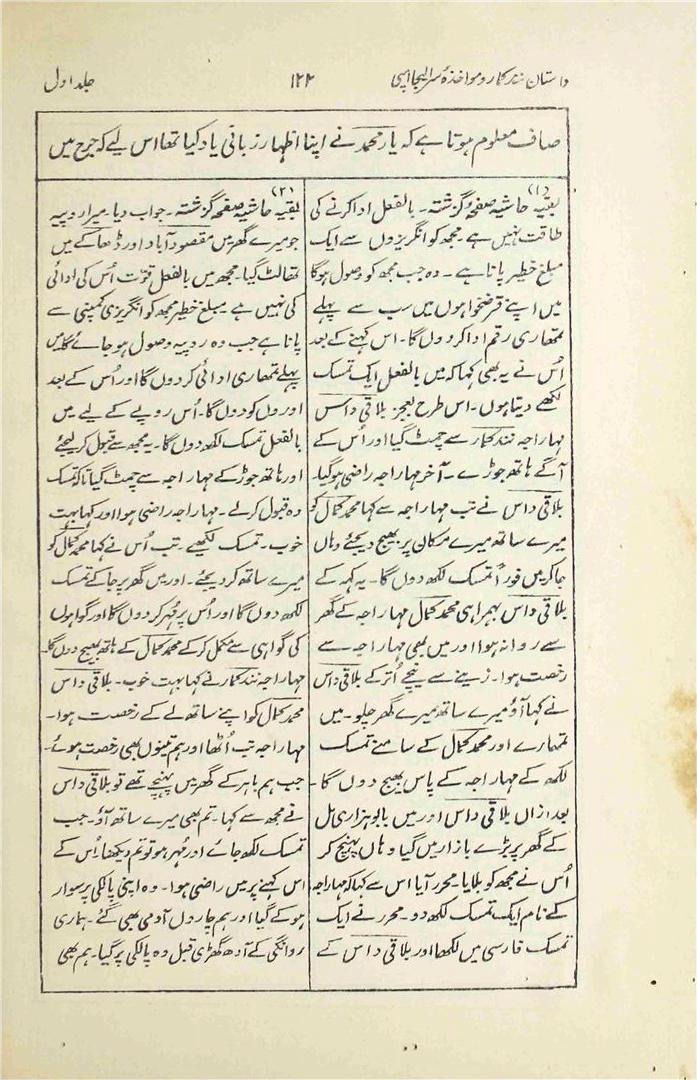 داستان نندکمار و مواخذۂ سر الیجا امپی
۱۲۴
جلد اول
صاف معلوم ہوتا ہے کہ یار محمد نے اپنا اظہار زبانی یاد کیا تھا اس لیے کہ جرح میں
(۱)
بقیہ حاشیہ صفحۂ گزشتہ۔ بالفعل ادا کرنے کی
طاقت نہیں ہے۔ مجھ کو انگریزوں سے ایک
مبلغ خطیر پانا ہے۔ وہ جب مجھ کو وصول ہوگا
میں اپنے قرضخواہوں میں سب سے پہلے
تمھاری رقم ادا کر دوں گا۔ اس کہنے کے بعد
اُس نے یہ بھی کہا کہ میں بالفعل ایک تمسک
لکھے دیتا ہوں۔ اس طرح بعجز بلاقی داس
مہاراجہ نندکمار سے چمٹ گیا اور اُس کے
آگے ہاتھ جوڑے۔ آخر مہاراجہ راضی ہوگیا۔
بلاقی داس نے تب مہاراجہ سے کہا محمد کمال کو
میرے ساتھ میرے مکان پر بھیج دیجئے وہاں
جا کر میں فوراً تمسک لکھ دوں گا۔ یہ کہہ کے
بلاقی داس بہمراہی محمد کمال مہاراجہ کے گھر
سے روانہ ہوا اور میں بھی مہاراجہ سے
رخصت ہوا۔ زینے سے نیچے اُتر کے بلاقی داس
نے کہا آؤ میرے ساتھ میرے گھر چلو۔ میں
تمہارے اور محمد کمال کے سامنے تمسک
لکھ کے مہاراجہ کے پاس بھیج دوں گا۔
بعد ازاں بلاقی داس اور میں بابو ہزاری مل
کے گھر پر بڑے بازار میں گیا وہاں پہنچ کر
اُس نے مجھ کو بلایا۔ محرر آیا اس سے کہا کہ مہاراجہ
کے نام ایک تمسک لکھ دو۔ محرر نے ایک
تمسک فارسی میں لکھا اور بلاقی داس کے
(۲)
بقیہ حاشیہ صفحہ گزشتہ۔ جواب دیا۔ میرا روپیہ
جو میرے گھر میں مقصود آباد اور ڈھاکے میں
تھا لٹ گیا۔ مجھ میں بالفعل قوت اُس کی ادائی
کی نہیں ہے مبلغ خطیر مجھ کو انگریزی کمپنی سے
پانا ہے جب وہ روپیہ وصول ہو جائے گا میں
پہلے تمھاری ادائی کر دوں گا اور اُس کے بعد
اوروں کو دوں گا۔ اُس روپے کے لیے میں
بالفعل تمسک لکھ دوں گا۔ یہ مجھ سے قبول کر لیجئے
اور ہاتھ جوڑ کے مہاراجہ سے چمٹ گیا تاکہ تمسک
وہ قبول کر لے۔ مہاراجہ راضی ہوا اور کہا بہت
خوب۔ تمسک لکھیے۔ تب اُس نے کہا محمد کمال کو
میرے ساتھ کر دیجئے۔ اور میں گھر پر جا کے تمسک
لکھ دوں گا اور اُس پر مُہر کر دوں گا اور گواہوں
کی گواہی سے مکمل کر کے محمد کمال کے ہاتھ بھیج دوں گا۔
مہاراجہ نندکمار نے کہا بہت خوب۔ بلاقی داس
محمد کمال کو اپنے ساتھ لے کے رخصت ہوا۔
مہاراجہ تب اُٹھا اور ہم تینوں بھی رخصت ہوئے۔
جب ہم باہر کے گھر میں پہنچے تھے تو بلاقی داس
نے مجھ سے کہا۔ تم بھی میرے ساتھ آؤ۔ جب
تمسک لکھ جائے اور مُہر ہو تو تم دیکھنا اُس کے
اس کہنے پر میں راضی ہوا۔ وہ اپنی پالکی پر سوار
ہو کے گیا اور ہم چار دل آدمی بھی گئے۔ ہماری
روانگی کے آدھ گھڑی قبل وہ پالکی پر گیا۔ ہم بھی